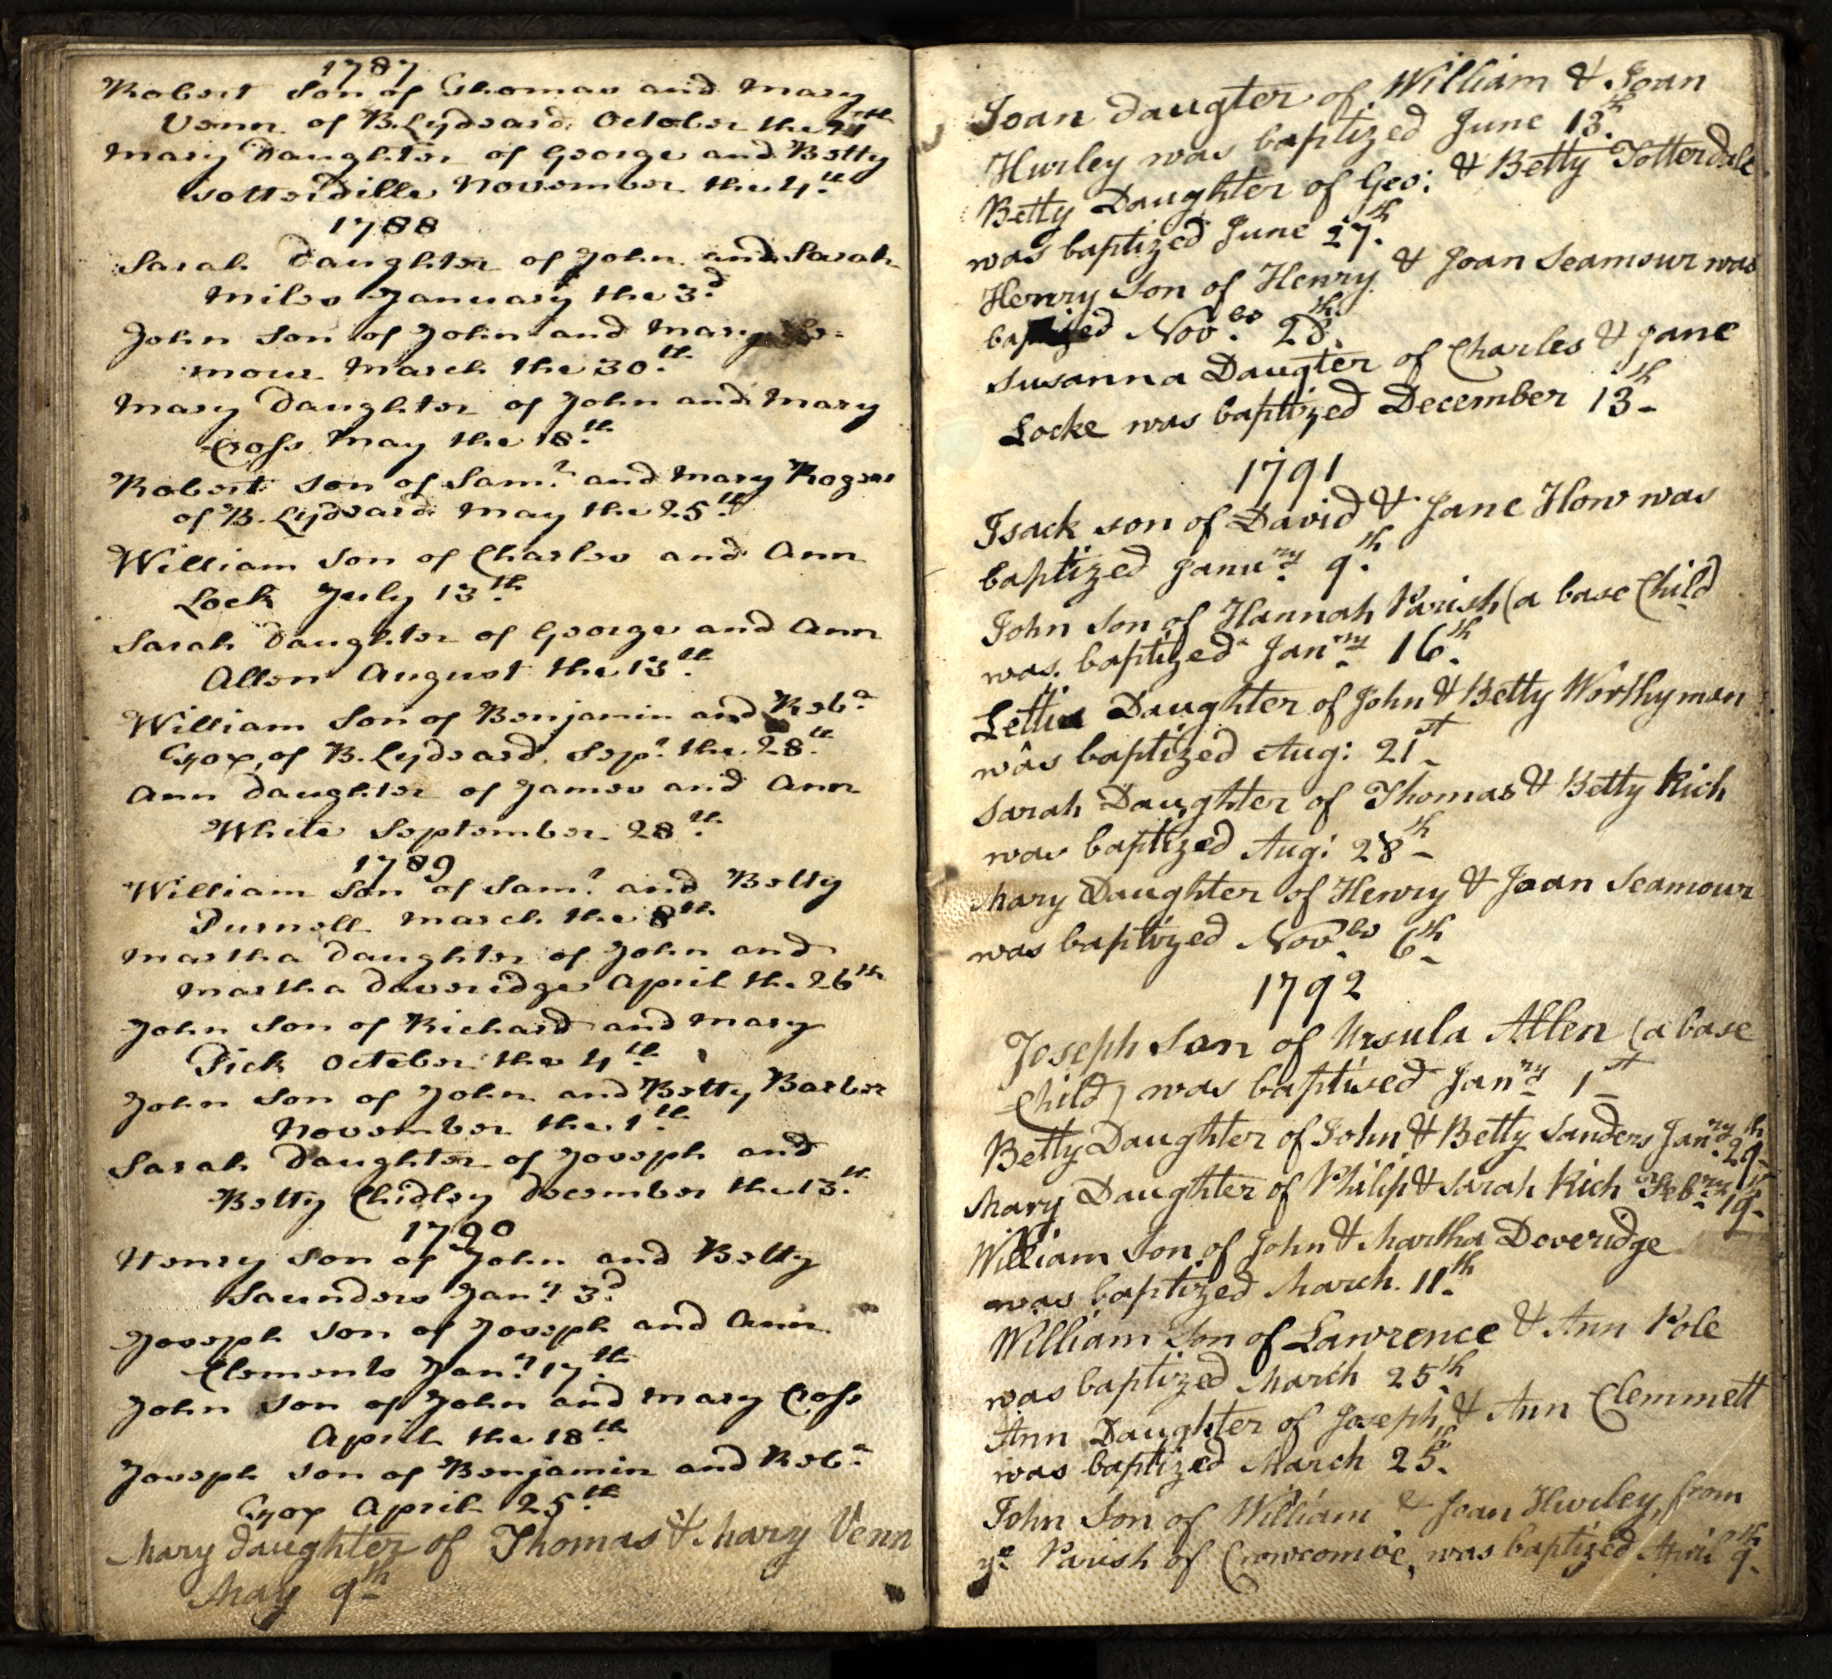 1787
Robert Son of Thomas and Mary
Venn of B. Lydeard October the
Mary Daughter of George and Betty
Totterdille November the 4th
1788
Sarah Daughter of John and Sarah
Miles January the 3d
John Son of John and Mary
mour March the 30th
Mary Daughter of John and Mary
Cross May the 18th
Robert Son of Saml and Mary Rogers
of B. Lydeard May the 25th
William Son of Charles and Ann
Lock July 13th
Sarah Daughter of George and Ann
Allen August the 13th
William Son of Benjamin and Reba
of B. Lydeard Sepr the 28th
Ann Daughter of James and Ann
White September 28th
1789
William Son of Saml and Betty
Purnell March the 8th
Martha Daughter of John and
Martha Daveridge April the 26th
John Son of Richard and Mary
Pick October the 4th
John Son of John and Betty Barber
November the 1th
Sarah Daughter of Joseph and
Betty Chidley December the 13th
1790
Henry Son of John and Betty
Saunders Jany 3d
Joseph Son of Joseph and Ann
Clements Jany 17th
John Son of John and Mary Cross
April the 18th
Joseph Son of Benjamin and Reba
April 25th
Mary daughter of Thomas & Mary Venn
May 9th
Joan daugter of William & Joan
Hurley was baptized June 13th
Betty Daughter of Geo: & Betty Totterdale
was baptized June 27th
Henry Son of Henry & Joan Seamour was
baptized Novbr 28th
Susanna Daugter of Charles & Jane
Locke was baptized December 13th
1791
Isack son of David & Jane How was
baptized Janury 9th
John Son of Hannah Parish (a base Child
was baptized Janry 16th
Lettia Daughter of John & Betty Worthyman
was baptized Aug: 21st
Sarah Daughter of Thomas & Betty Rich
was baptized Aug: 28th
Mary Daughter of Henry & Joan Seamour
was baptized Novbr 6th
1792
Joseph Son of Ursula Allen (a base
Child) was baptised Janry 1st
Betty Daughter of John & Betty Sanders Janry 29th
Mary Daughter of Philip & Sarah Rich Febry 19th
William Son of John & Martha Doveridge
was baptized March 11th
William Son of Lawrence & Ann Pole
was baptized March 25th
Ann Daughter of Joseph & Ann Clemmett
was baptized March 25th
John Son of William & Joan Hurley, from
ye Parish of Crowcombe, was baptized April 9th